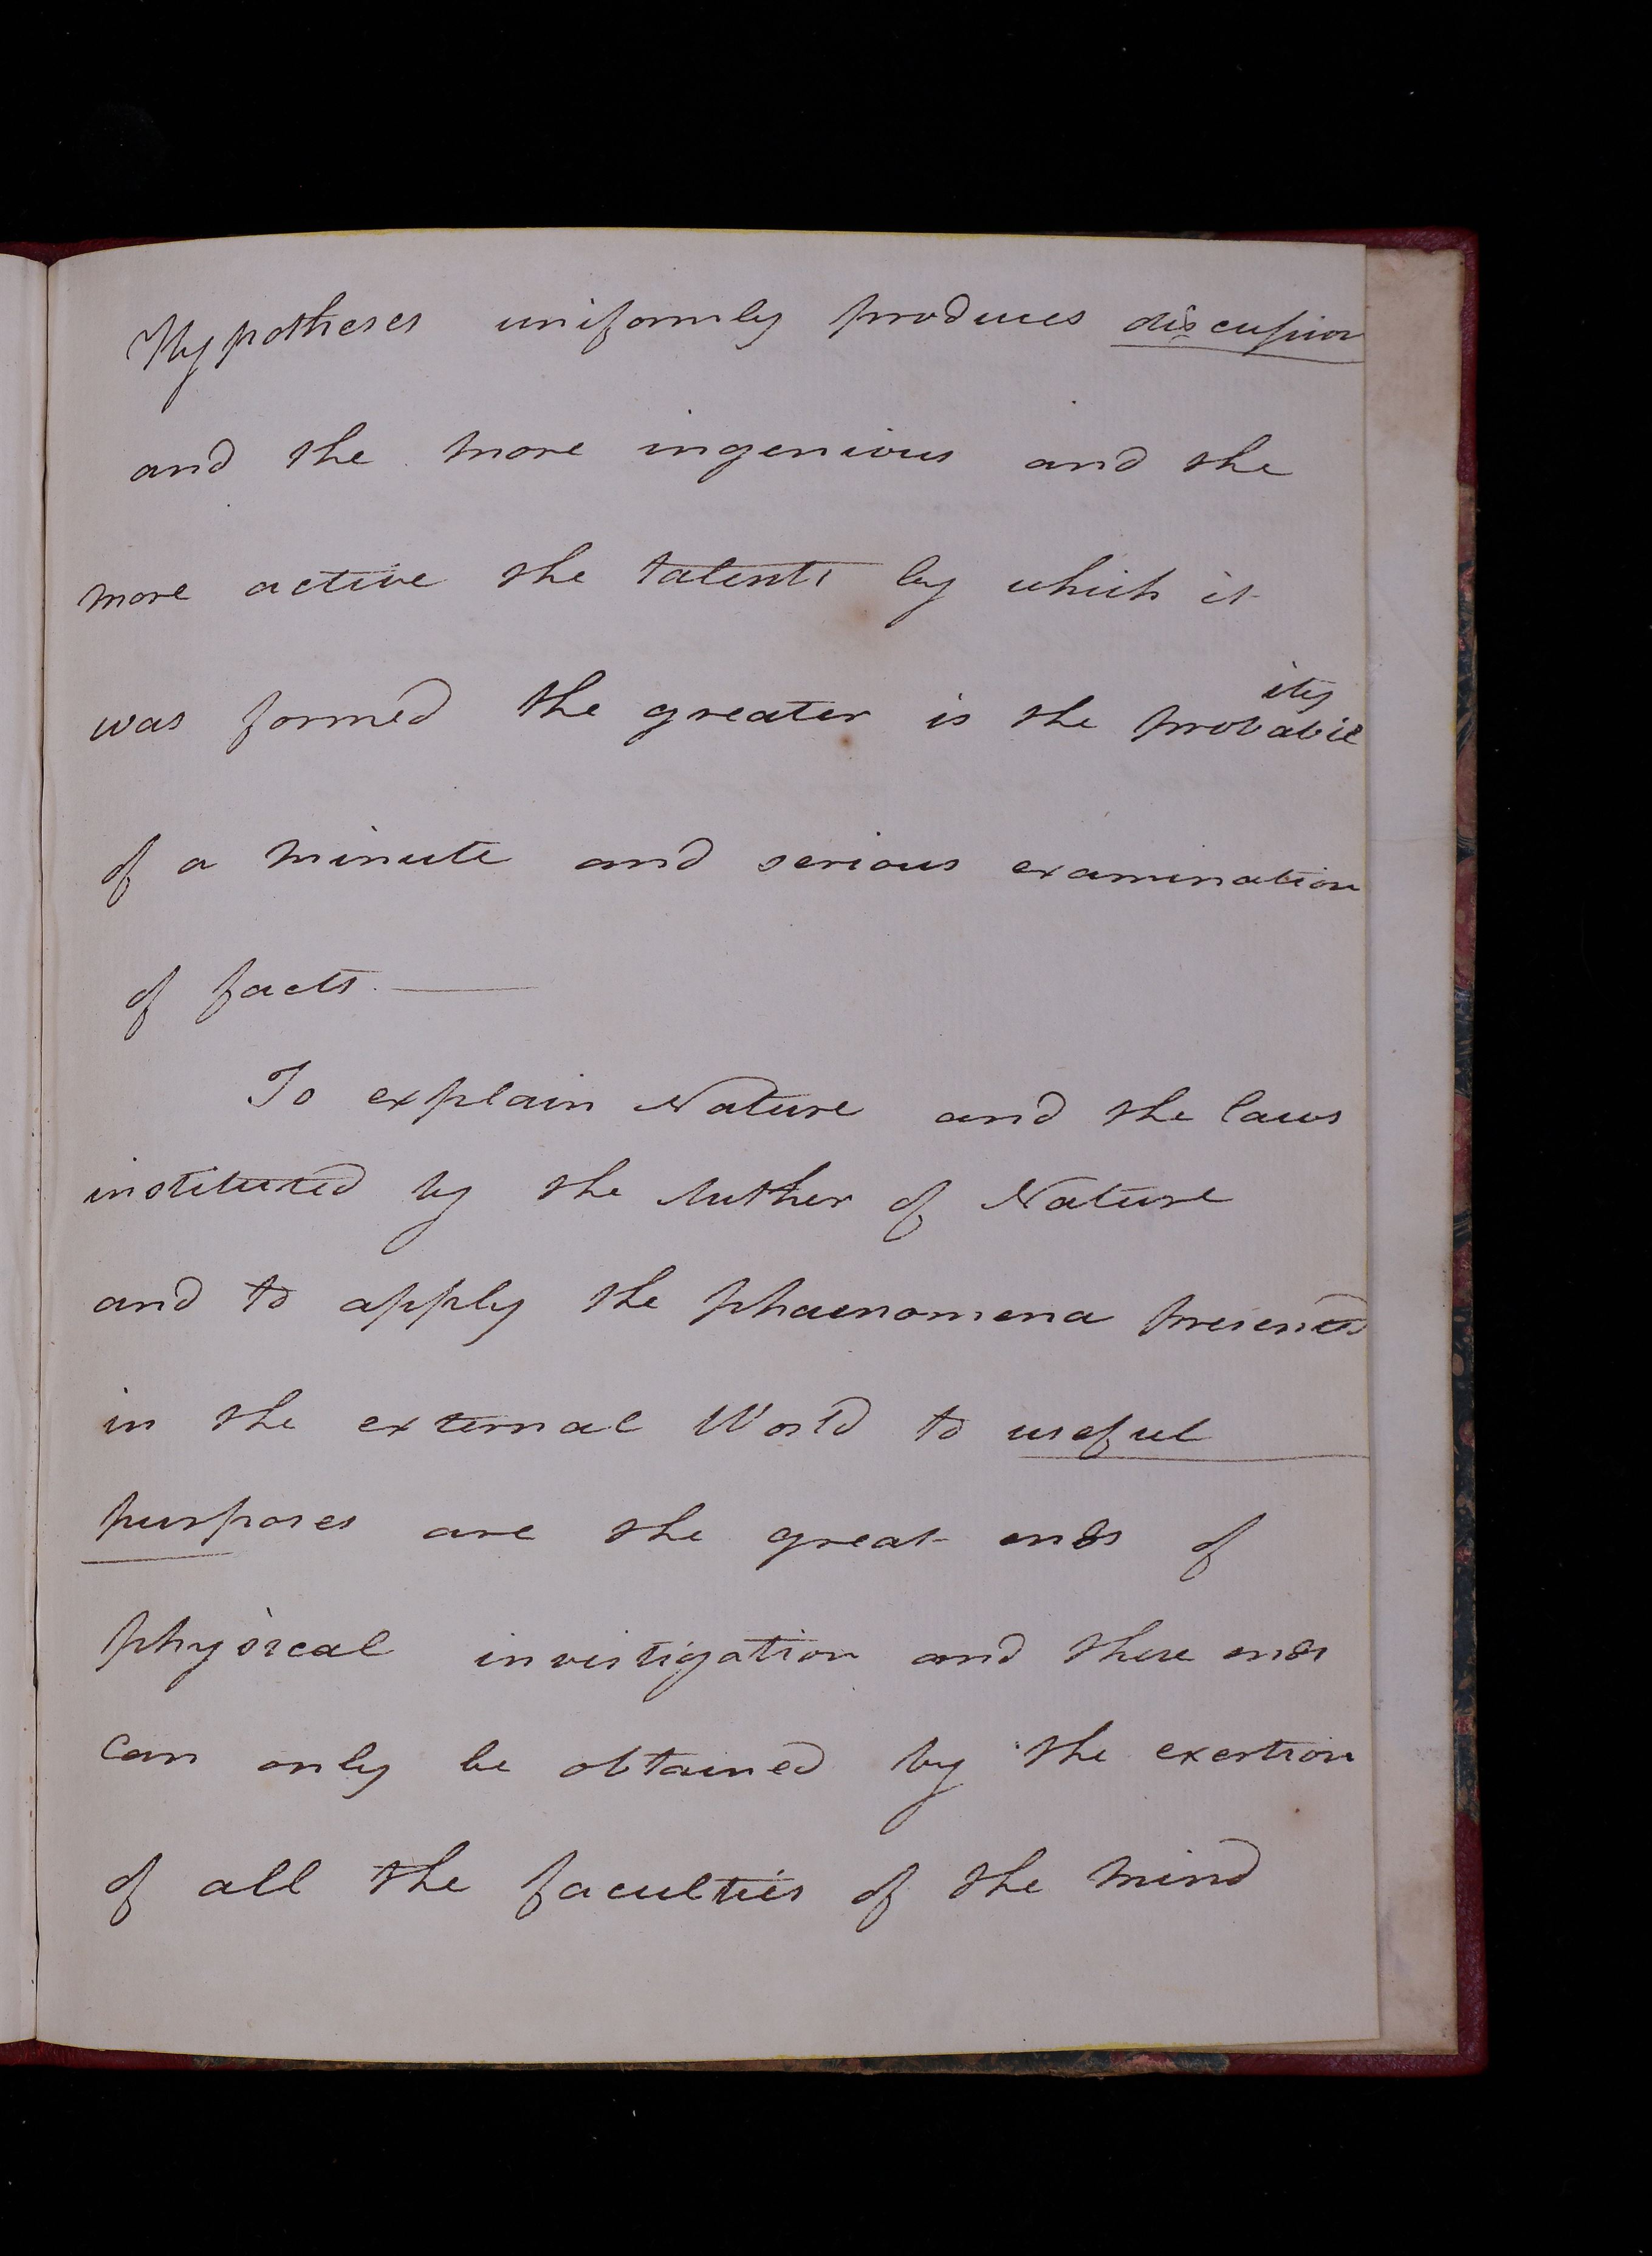 Hypotheses uniformly produces discussion
and the more ingenious and the
more active the talents by which it
was formed the greater is the probability
of a minute and serious examination
of facts. —
To explain Nature and the laws
instituted by the Author of Nature
and to apply the phaenomena presented
in the external World to useful
purposes are the great ends of
physical investigation and these ends
can only be obtained by the exertion
of all the faculties of the mind